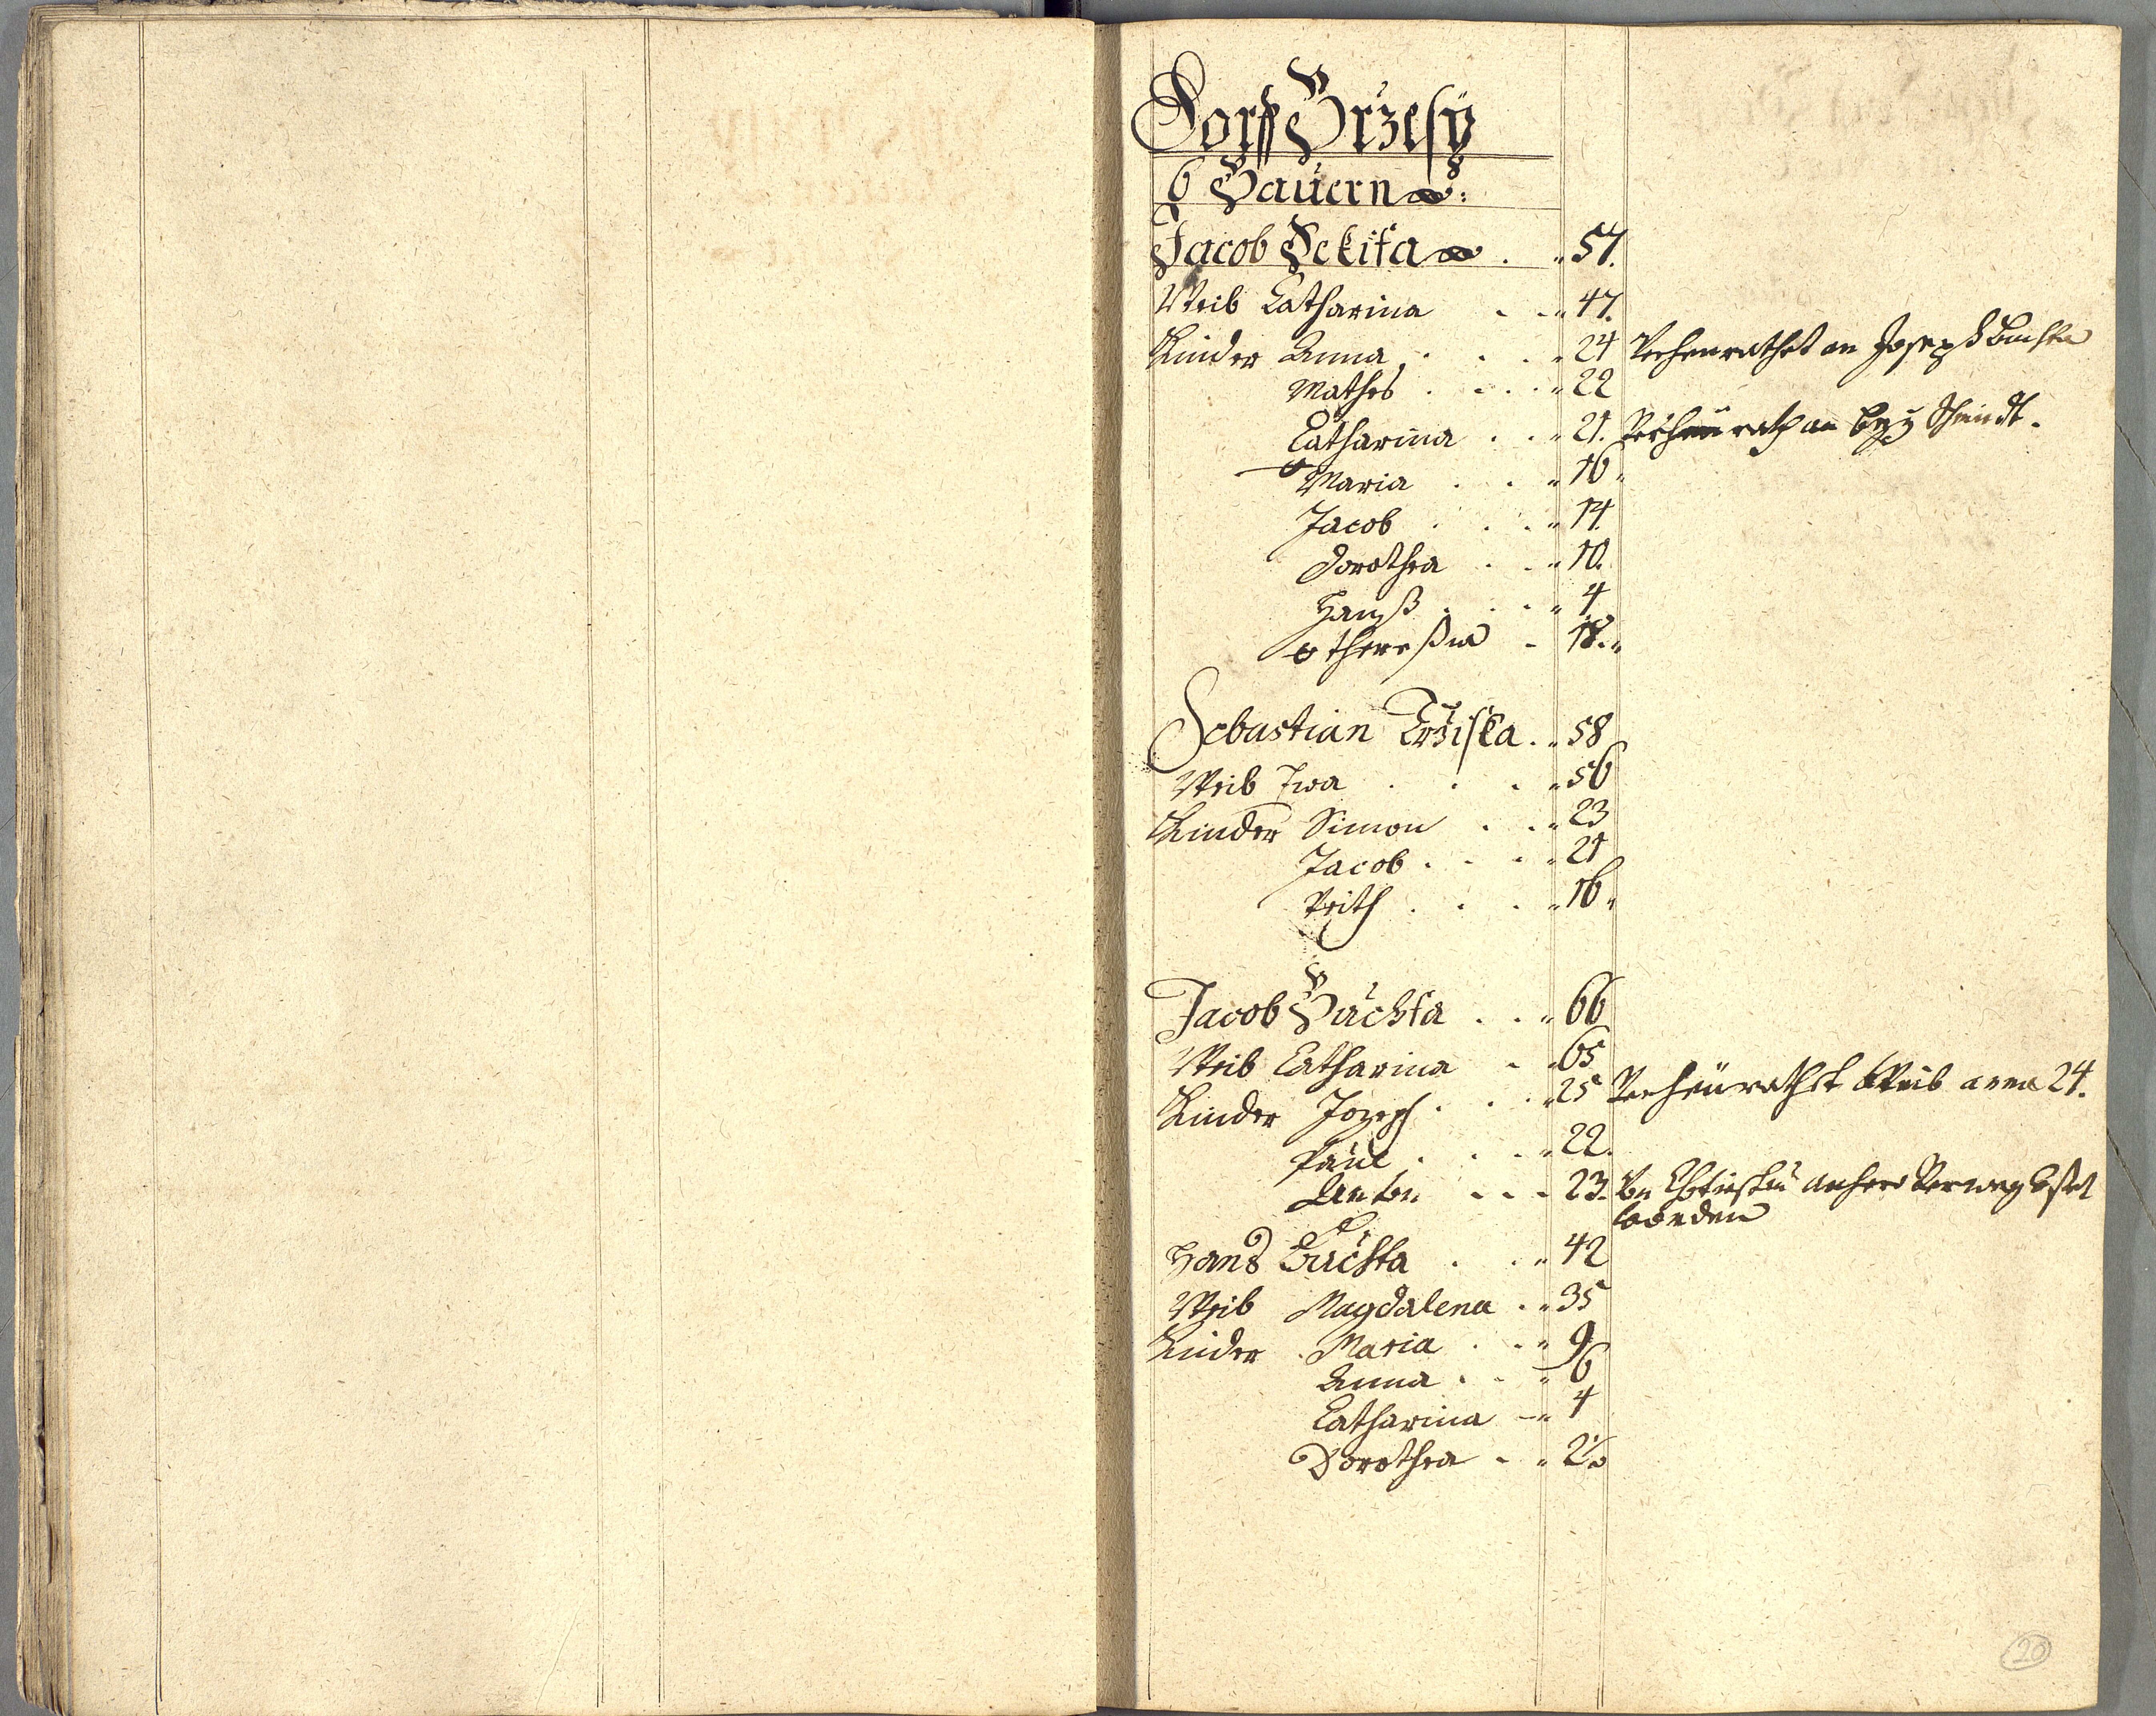 Dorff Brzesy
6 Bauern:
Jacob Pekita . . 57.
Weib Catharina . . 47.
Kinder Anna . . 24 Verheurathet an Joseph Buchta
Mathes . . 22
Catharina . . 21. Verheurath an
Maria . . 16
Jacob . . 14
Dorothea . . 10.
Hanß . . 4
Theresia . 18.
Sebastian Trziska . 58
Weib Ewa . . . 56
Kinder Simon . . 23
Jacob . . . 21
Veith . . . 16
Jacob Buchta . . 66
Weib Catharina . . 65
Kinder Joseph . . . 25 Verheurathet Weib anna 24.
Paul . . . 22.
Anton . . . 23.
worden
Hans Buchta . . 42
Weib Magdalena . . 35
Kinder . Maria . . 9
Anna . . 6
Catharina . 4
Dorothea . . 2½
20